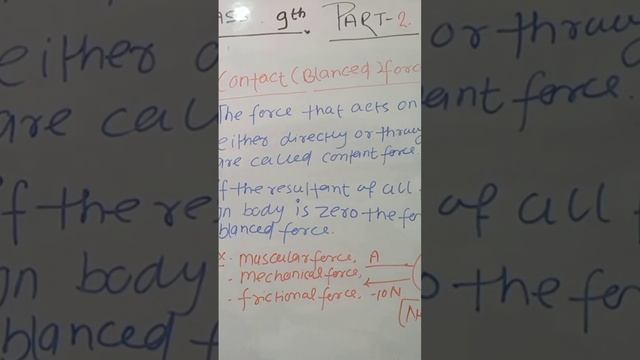 ASS. 9th. PART-2.
Contact (Blanced) forc
The force that acts on
either directly or throug
are called contant force
If the resultant of all
on body is zero the fo
blanced force.
Ex. muscular force, A
- mechanical force,
- frictional force, -10N